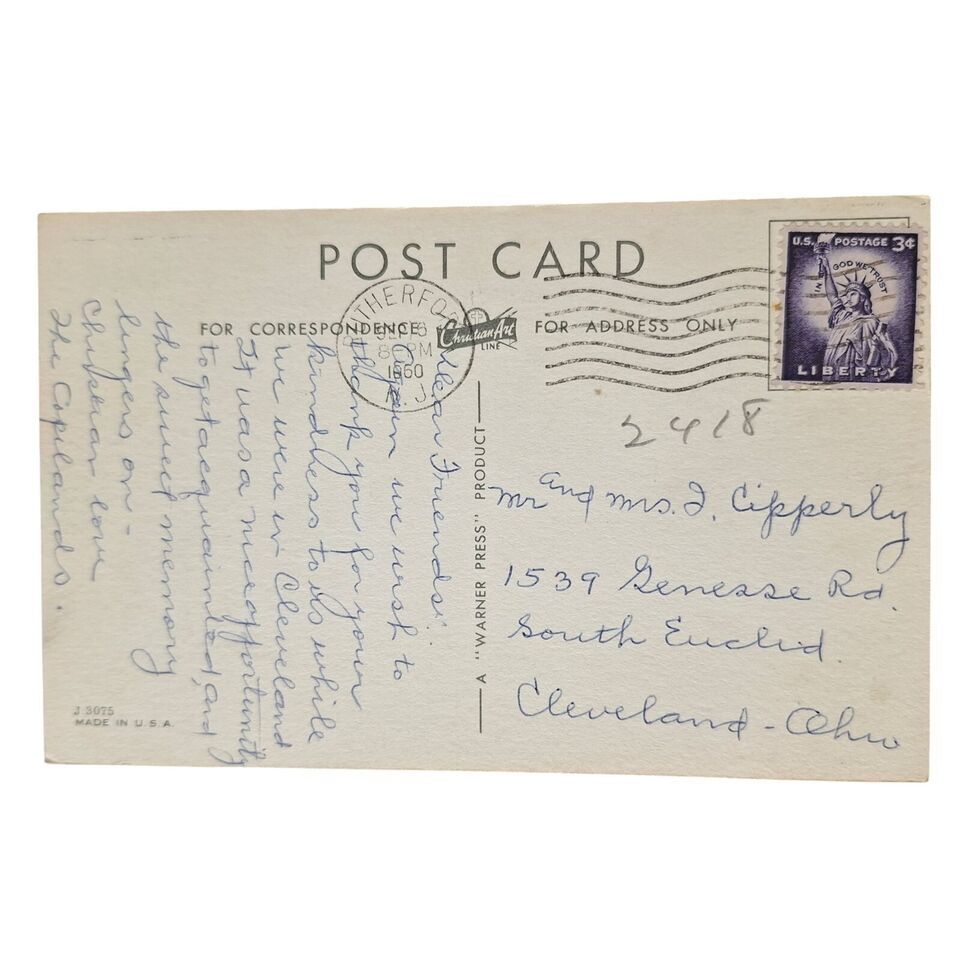 POST CARD
FOR CORRESPONDENCE
Christian Art
LINE
FOR ADDRESS ONLY
RUTHERFORD
SEP 6
8 PM
1960
N.J.
U.S. POSTAGE 3¢
IN GOD WE TRUST
LIBERTY
2418
Dear Friends:
Again we wish to
thank you for your
kindness to us while
we were in Cleveland
It was a nice opportunity
to get acquainted, and
the sweet memory
lingers on -
Christian love
The Copelands.
A "WARNER PRESS" PRODUCT
Mr and Mrs. J. Cipperly
1539 Genesse Rd.
South Euclid.
Cleveland - Ohio
J 3075
MADE IN U.S.A.